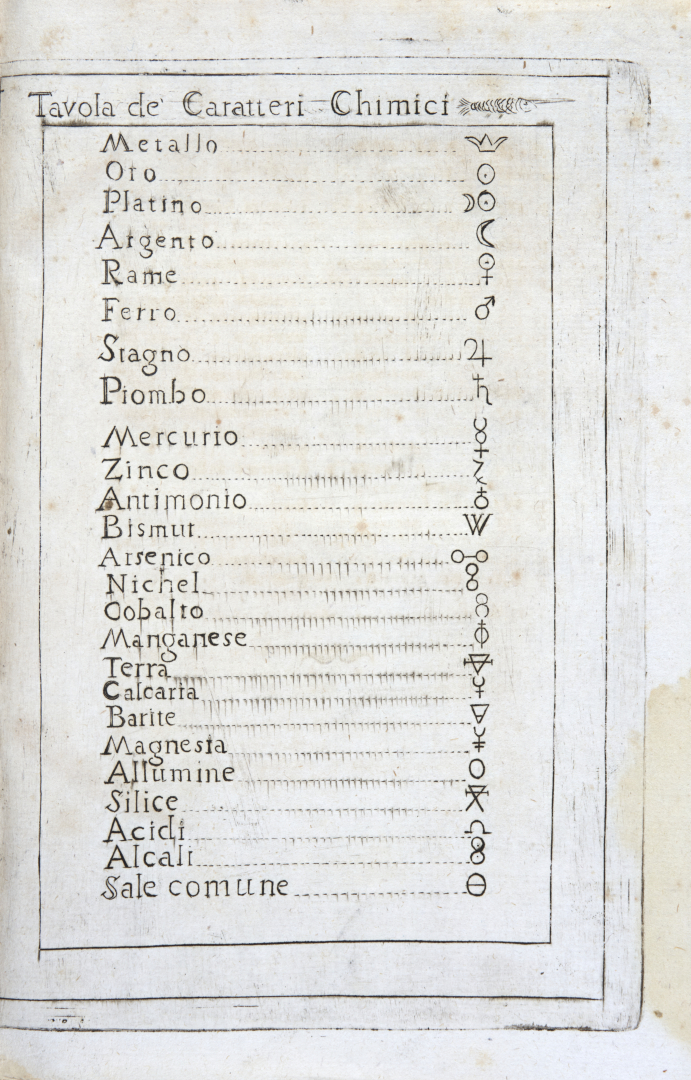 Tavola de' Caratteri Chimici
Metallo
Oro
Platino ☽☉
Argento ☾
Rame ♀
Ferro ♂
Stagno ♃
Piombo ♄
Mercurio ☿
Zinco
Antimonio ♁
Bismut W
Arsenico
Nichel
Cobalto
Manganese
Terra
Calcaria
Barite
Magnesia
Allumine
Silice
Acidi
Alcali
Sale comune